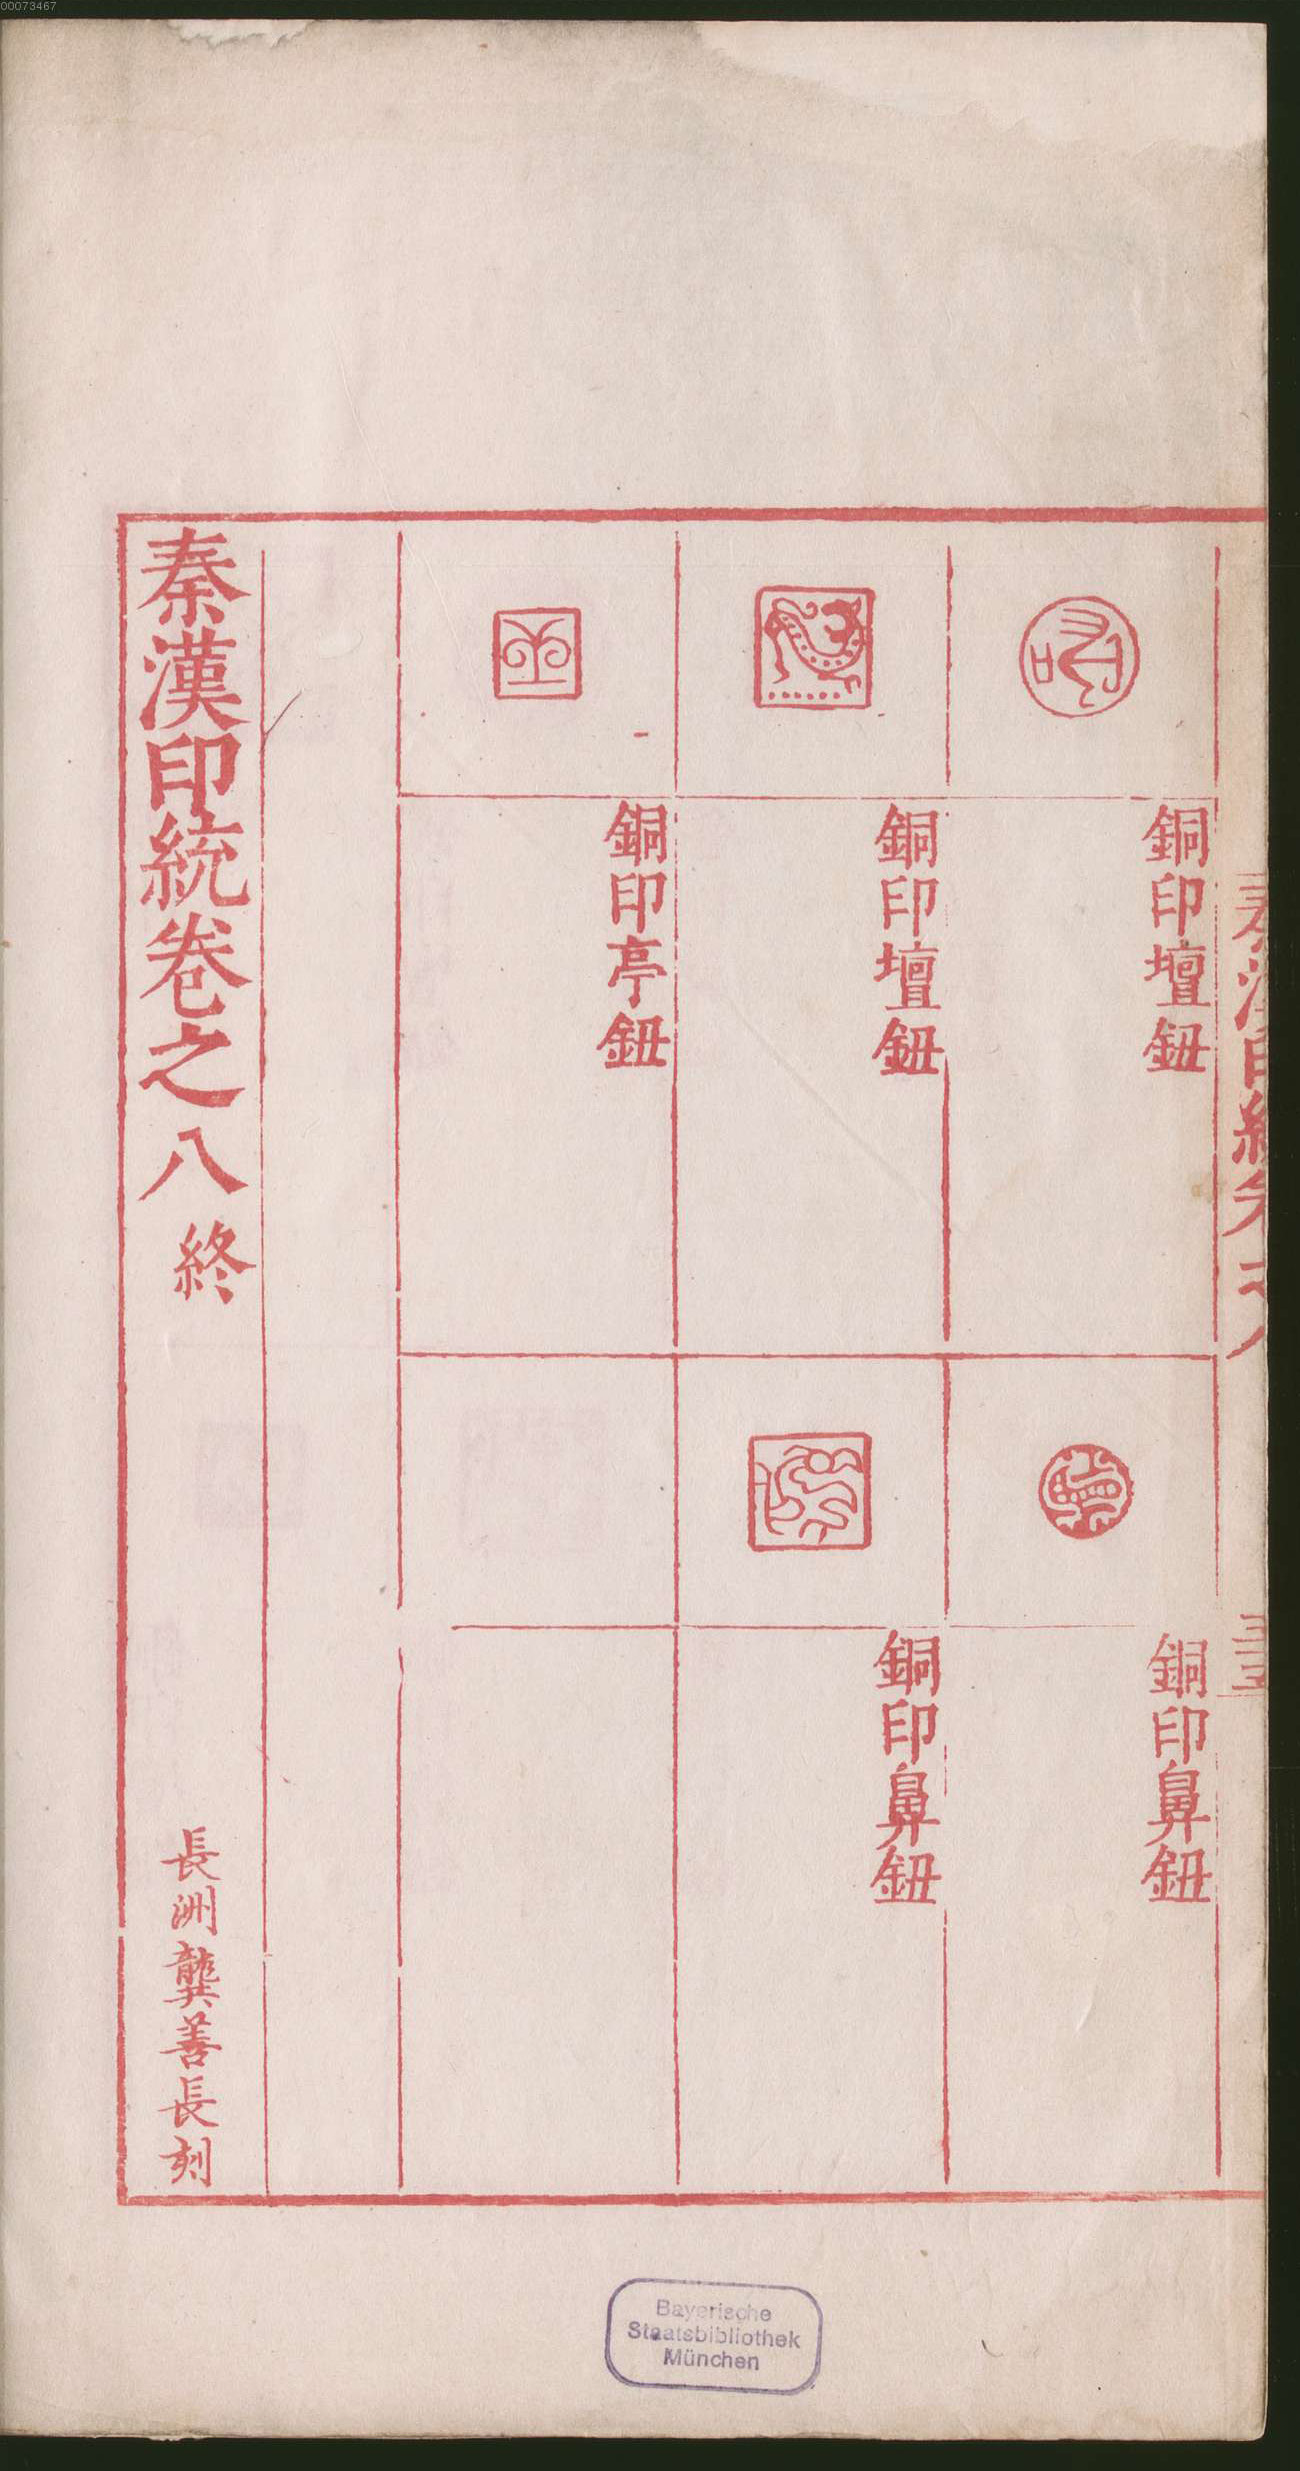 00073467
銅印壇鈕
銅印鼻鈕
銅印壇鈕
銅印鼻鈕
銅印亭鈕
秦漢印統卷之八終
長洲龔善長刻
Bayerische
Staatsbibliothek
München